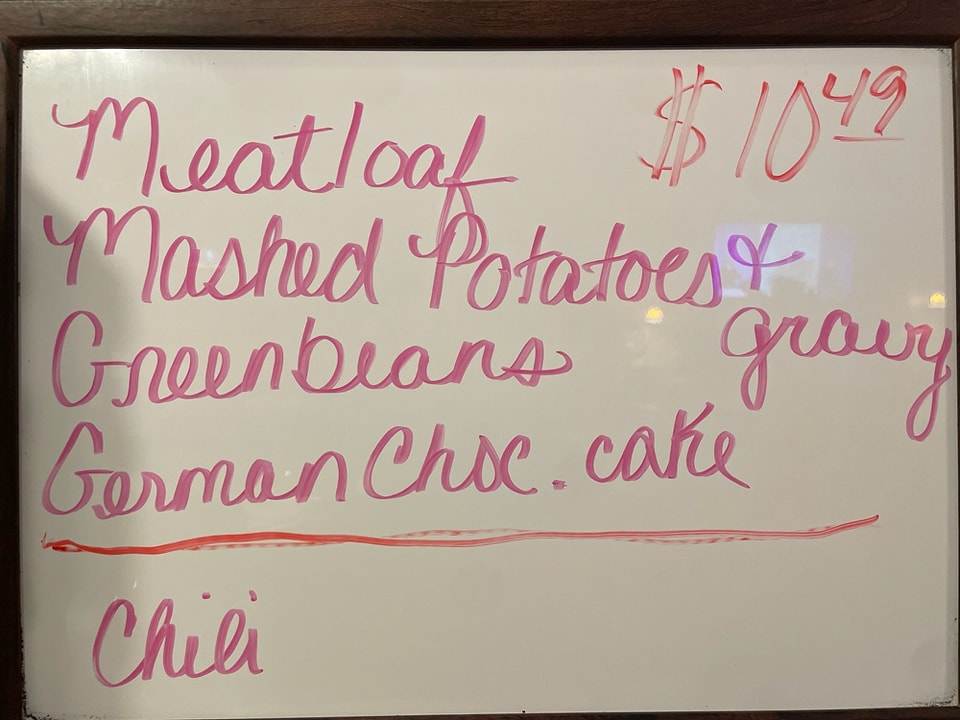 Meatloaf $10.49
Mashed Potatoes &
gravy
Greenbeans
German Choc. cake
Chili